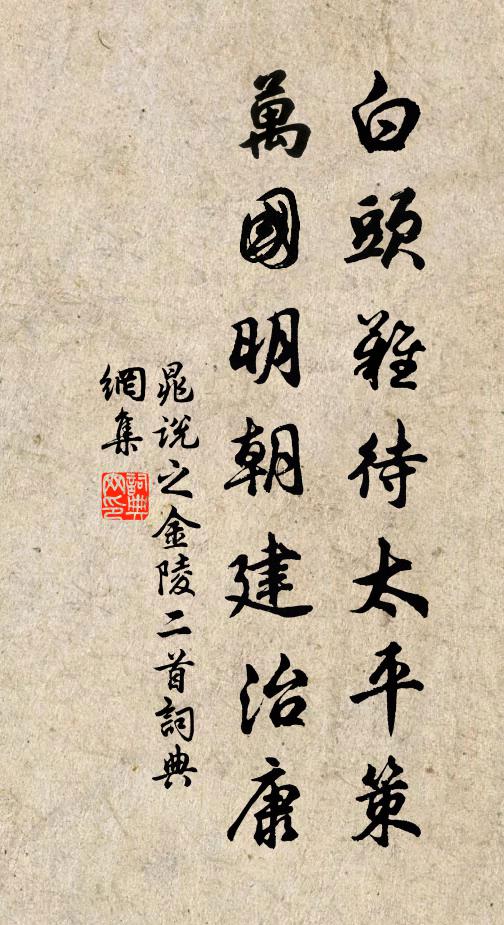 白頭難待太平策
萬國明朝建治康
晁說之金陵二首詞典
網集
詞典
网印